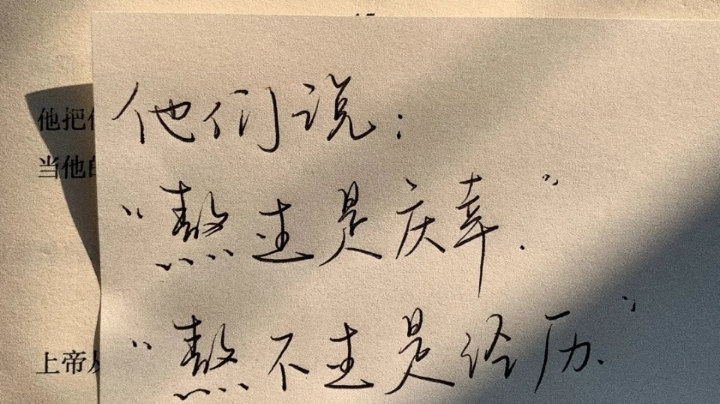 他们说：
他把
当他的
“熬过是庆幸.”
“熬不过是经历.”
上帝